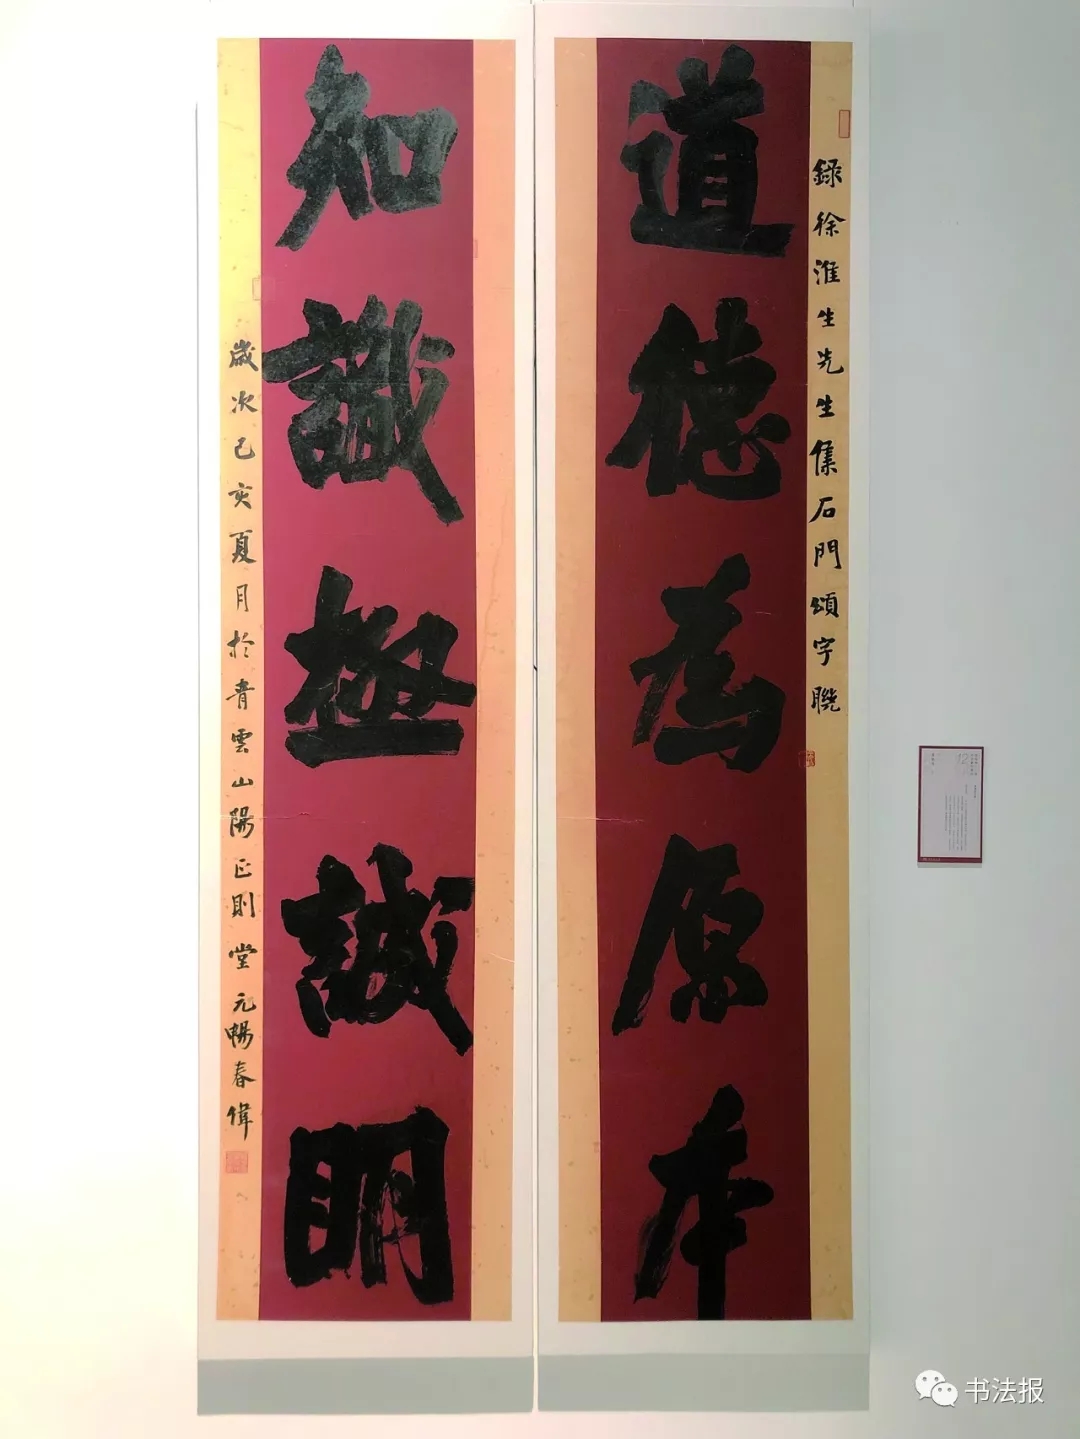 錄徐淮生先生集石門頌字聯
道德為原本
知識極誠明
歲次己亥夏月於青雲山陽正則堂元暢春偉
书法报